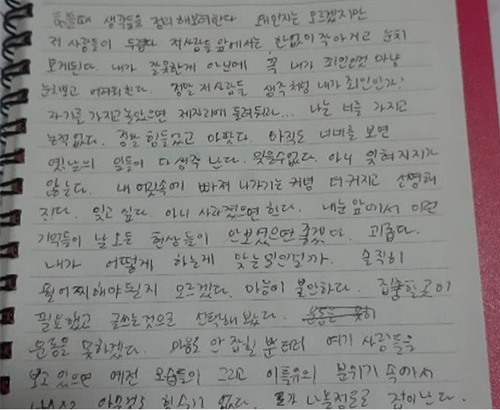 힘들때 생각들을 정리해보려한다 왜인지는 모르겠지만
저 사람들이 두렵다 저사람들 앞에서는, 한없이 작아지고 눈치
보게된다. 내가 잘못한게 아닌데 꼭 내가 죄인인것 마냥
눈치보고 어려워진다. 정말 저사람들 생각처럼 내가 죄인인가?
자기를 가지고 놀았으면 제자리에 돌려놔라... 나는 너를 가지고
논적 없다. 정말 힘들었고 아팠다 아직도 너네를 보면
옛날의 일들이 다 생각 난다. 잊을수없다. 아니 잊혀지지가
않는다. 내 머릿속에 빠져 나가기는 커녕 더 커지고 선명해
진다. 잊고 싶다. 아니 사라졌으면 한다. 내눈 앞에서 이런
기억들이 날 오든 현상들이 안보였으면 좋겠다. 괴롭다.
내가 어떻게 하는게 맞는일인걸까. 솔직히
뭘 어찌해야될지 모르겠다. 마음이 불안하다. 집중할곳이
필요했고 글쓰는것으로 선택해 봤다.
운동을 못하겠다. 마음도 안 잡힐 뿐더러 여기 사람들을
보고 있으면 예전 모습들이 그리고 이특유의 분위기 속에서
아무것도 할수가 없다.